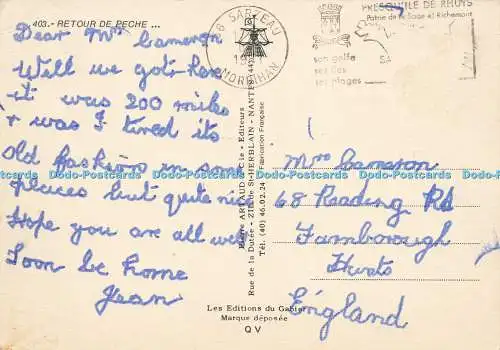 403.- RETOUR DE PECHE ...
Dear Mrs Cameron
Well we got here
it was 200 miles
& was I tired its
Old fashion in some
places but quite nice
Hope you are all well
Soon be home
Jean
SARZEAU
MORBIHAN
PRESQU'ILE DE RHUYS
Patrie de Le Sage et Richemont
son golfe
ses îles
ses plages
Pierre ARTAUD & Cie - Editeurs
Rue de la Dutée - 2118 St-HERBLAIN - NANTES (44)
Tél. (40) 46.02.24 Fabrication Française
Mrs Cameron
68 Reading Rd
Farnborough
Hants
England
Les Editions du Gabier
Marque déposée
QV
Dodo-Postcards Dodo-Postcards Dodo-Postcards Dodo-Postcards